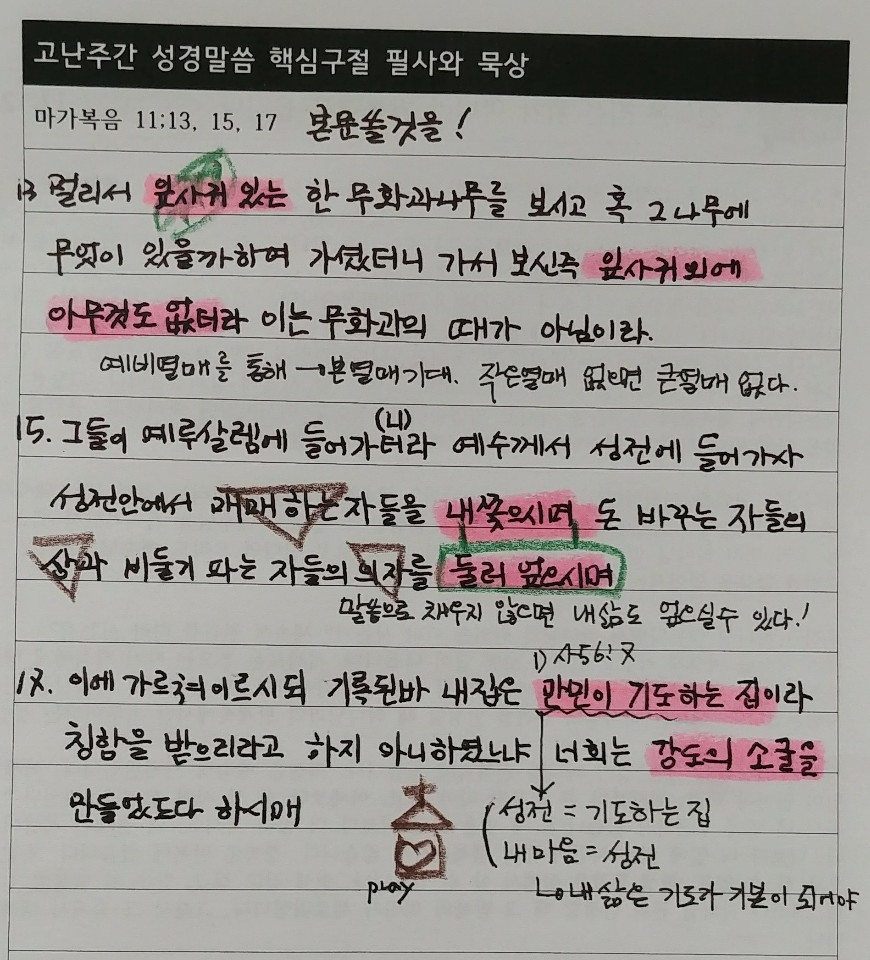 고난주간 성경말씀 핵심구절 필사와 묵상
마가복음 11;13, 15, 17 본문쓸것을!
13 멀리서 잎사귀 있는 한 무화과나무를 보시고 혹 그 나무에
무엇이 있을까하여 가셨더니 가서 보신즉 잎사귀 외에
아무것도 없더라 이는 무화과의 때가 아님이라.
예비열매를 통해 → 본열매기대. 작은열매 없으면 큰열매 없다.
(니)
15. 그들이 예루살렘에 들어가더라 예수께서 성전에 들어가사
성전안에서 매매하는 자들을 내쫓으시며 돈 바꾸는 자들의
상과 비둘기 파는 자들의 의자를 둘러 엎으시며
말씀으로 채우지 않으면 내삶도 엎으실수 있다!
1) 사56:7
17. 이에 가르쳐이르시되 기록된바 내집은 만민이 기도하는 집이라
칭함을 받으리라고 하지 아니하였느냐 너희는 강도의 소굴을
만들었도다 하시매
성전 = 기도하는 집
내 마음 = 성전
pray
내삶은 기도가 기본이 되어야